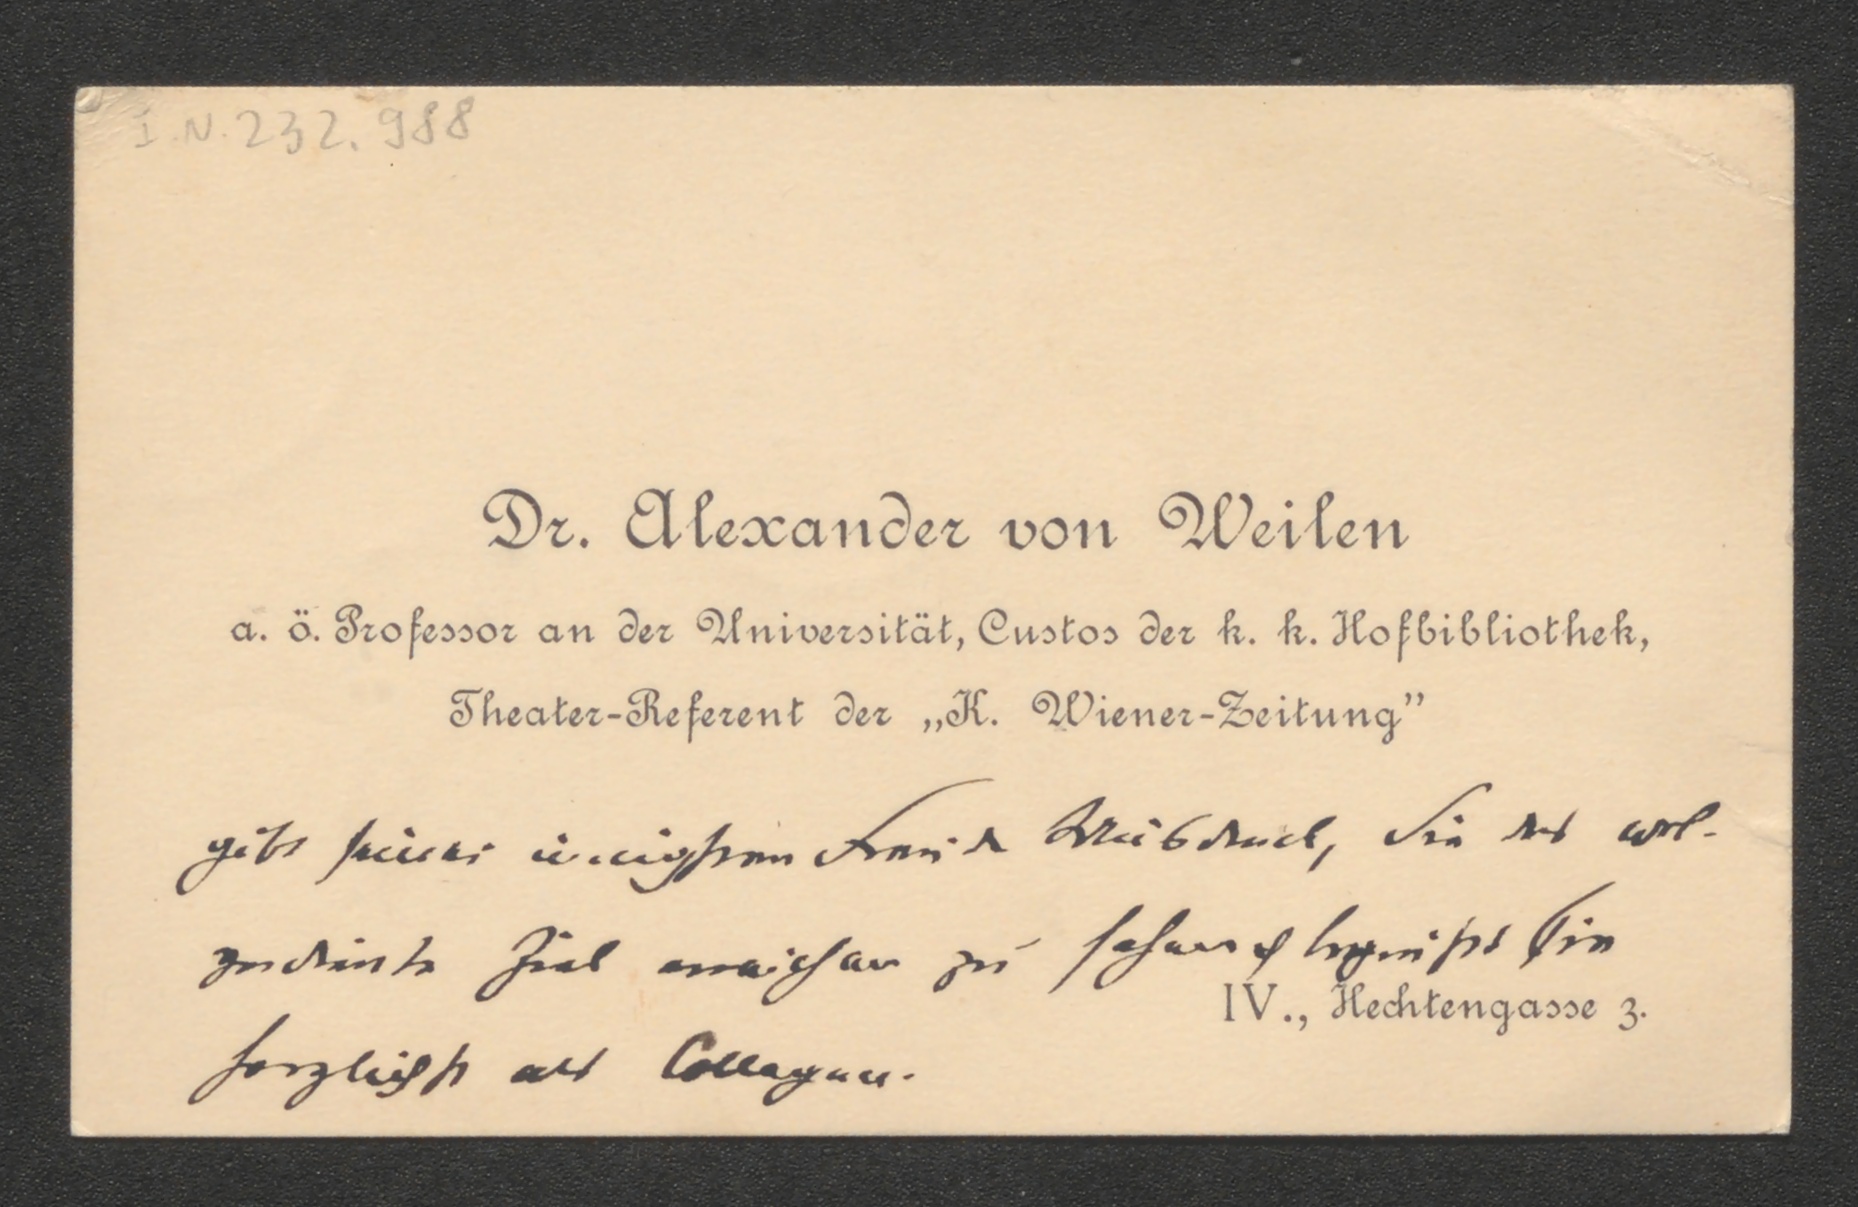 I.N. 232.988
Dr. Alexander von Weilen
a. ö. Professor an der Universität, Custos der k. k. Hofbibliothek,
Theater-Referent der „K. Wiener-Zeitung”
gibt seiner innigsten Freude Ausdruck, Sie das wol-
verdiente Ziel erreichen zu sehen u begrüßt Sie
IV., Hechtengasse 3.
herzlichst als Collegen.